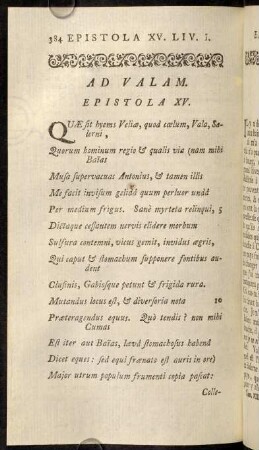 384 EPISTOLA XV. LIV. I.
AD VALAM.
EPISTOLA XV.
QUÆ sit hyems Veliæ, quod cœlum, Vala, Sa-
lerni,
Quorum hominum regio & qualis via (nam mihi
Baïas
Musa supervacuas Antonius, & tamen illis
Me facit invisum gelidâ quum perluor undâ
Per medium frigus. Sanè myrteta relinqui, 5
Dictaque cessantem nervis elidere morbum
Sulfura contemni, vicus gemit, invidus ægris,
Qui caput & stomachum supponere fontibus au-
dent
Clusinis, Gabiosque petunt & frigida rura.
Mutandus locus est, & diversoria nota 10
Præteragendus equus. Quò tendis? non mihi
Cumas
Est iter aut Baïas, lævâ stomachosus habenâ
Dicet eques: sed equi frænato est auris in ore)
Major utrum populum frumenti copia pascat:
Colle-